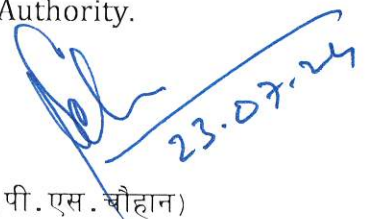 Authority.
23.07.24
पी.एस.चौहान)